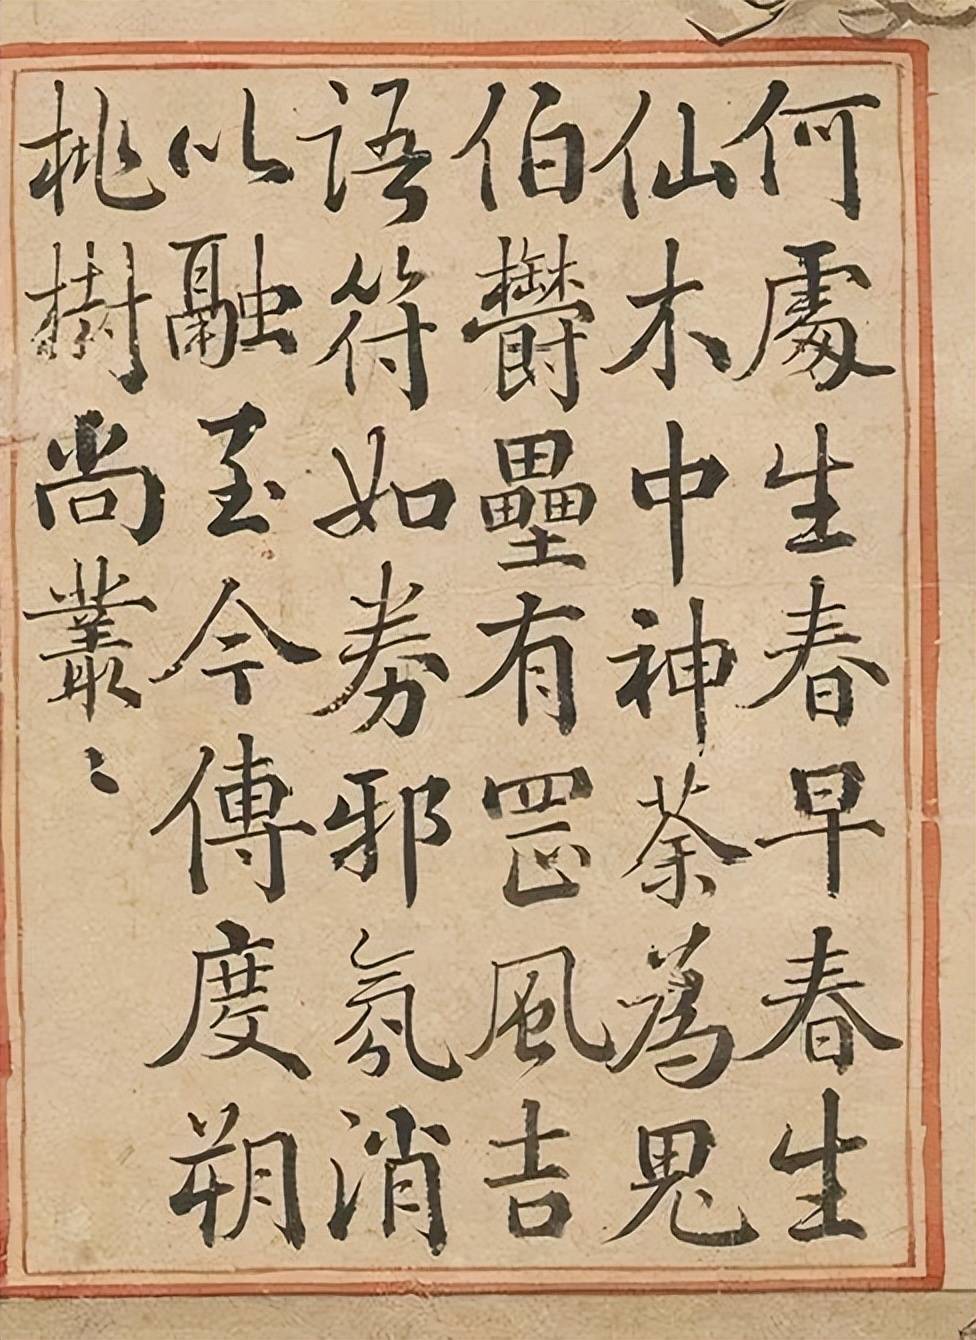 何處生春早春生
仙木中神荼為鬼
伯欝壘有罡風吉
語符如券邪氛消
以融至今傳度朔
桃樹尚叢〻